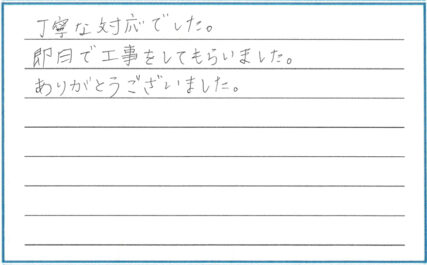 丁寧な対応でした。
即日で工事をしてもらいました。
ありがとうございました。